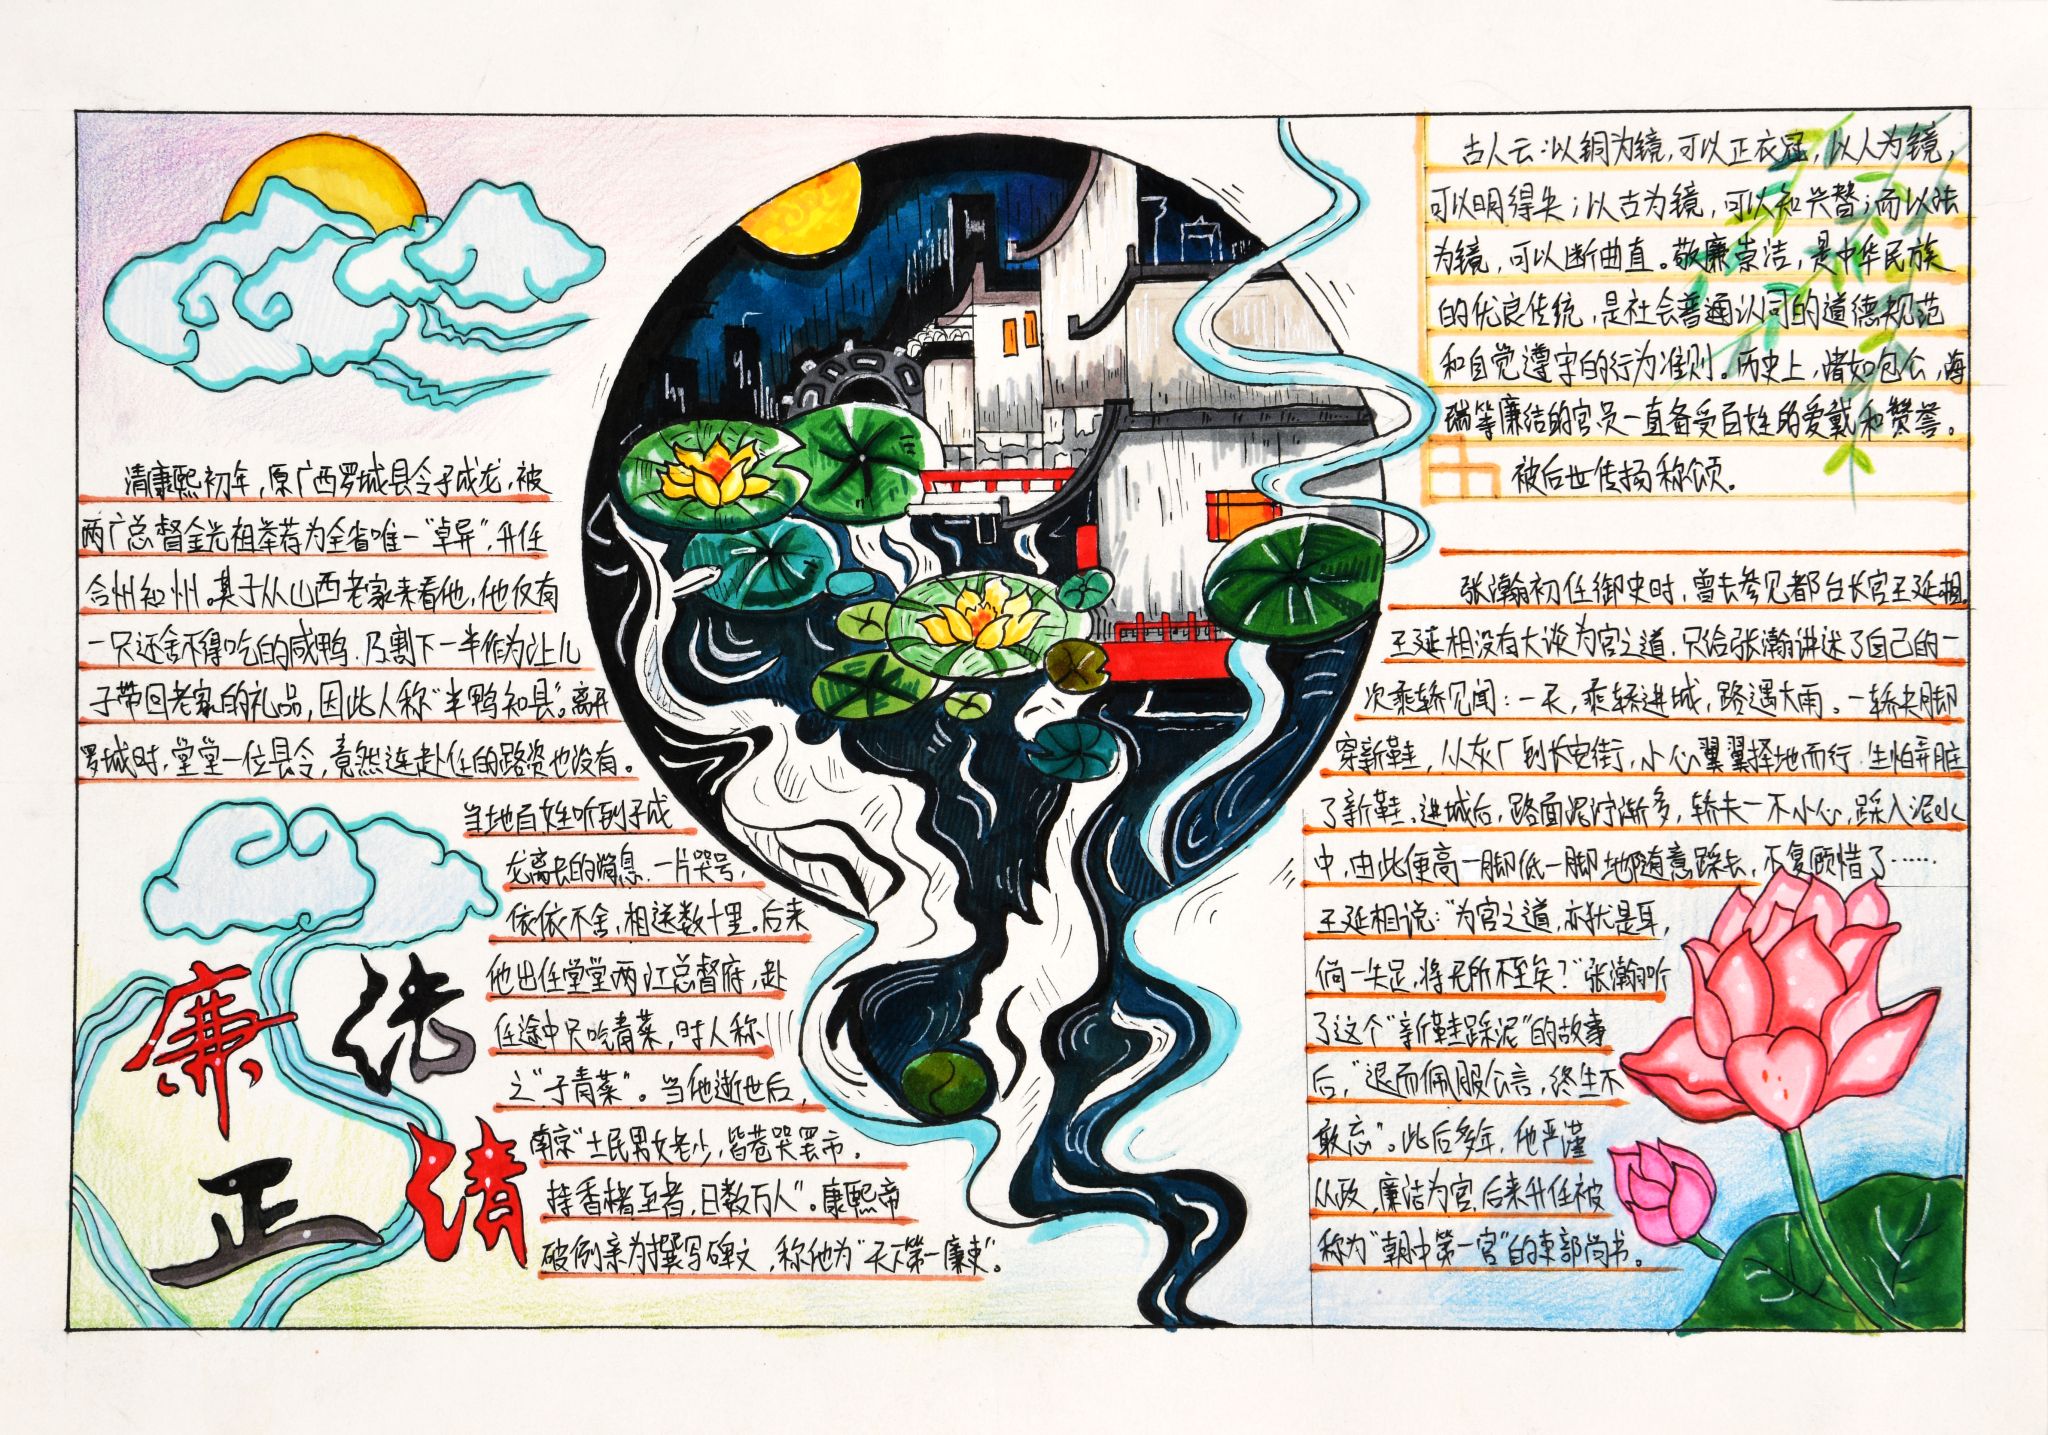 清康熙初年，原广西罗城县令于成龙，被
两广总督金光祖举荐为全省唯一“卓异”，升任
合州知州。其子从山西老家来看他，他仅有
一只还舍不得吃的咸鸭，乃割下一半作为让儿
子带回老家的礼品，因此人称“半鸭知县”。离开
罗城时，堂堂一位县令，竟然连赴任的路资也没有。
当地百姓听到于成
龙离去的消息，一片哭号，
依依不舍，相送数十里。后来
他出任堂堂两江总督府，赴
任途中只吃青菜，时人称
之“于青菜”。当他逝世后，
南京“士民男女老少，皆巷哭罢市。
持香楮至者，日数万人”。康熙帝
破例亲为撰写碑文，称他为“天下第一廉吏”。
廉洁
正清
古人云：以铜为镜，可以正衣冠，以人为镜，
可以明得失；以古为镜，可以知兴替；而以法
为镜，可以断曲直。敬廉崇洁，是中华民族
的优良传统，是社会普遍认同的道德规范
和自觉遵守的行为准则。历史上，诸如包公，海
瑞等廉洁的官员一直备受百姓的爱戴和赞誉。
被后世传扬称颂。
张瀚初任御史时，曾去参见都台长官王廷相。
王廷相没有大谈为官之道，只给张瀚讲述了自己的一
次乘轿见闻：一天，乘轿进城，路遇大雨。一轿夫脚
穿新鞋，从灰厂到长安街，小心翼翼择地而行，生怕弄脏
了新鞋。进城后，路面泥泞渐多，轿夫一不小心，踩入泥水
中，由此便高一脚低一脚地随意踩去，不复顾惜了……
王廷相说：“为官之道，亦犹是耳，
倘一失足，将无所不至矣？”张瀚听
了这个“新鞋踩泥”的故事
后，“退而佩服公言，终生不
敢忘”。此后多年，他严谨
从政，廉洁为官，后来升任被
称为“朝中第一官”的吏部尚书。